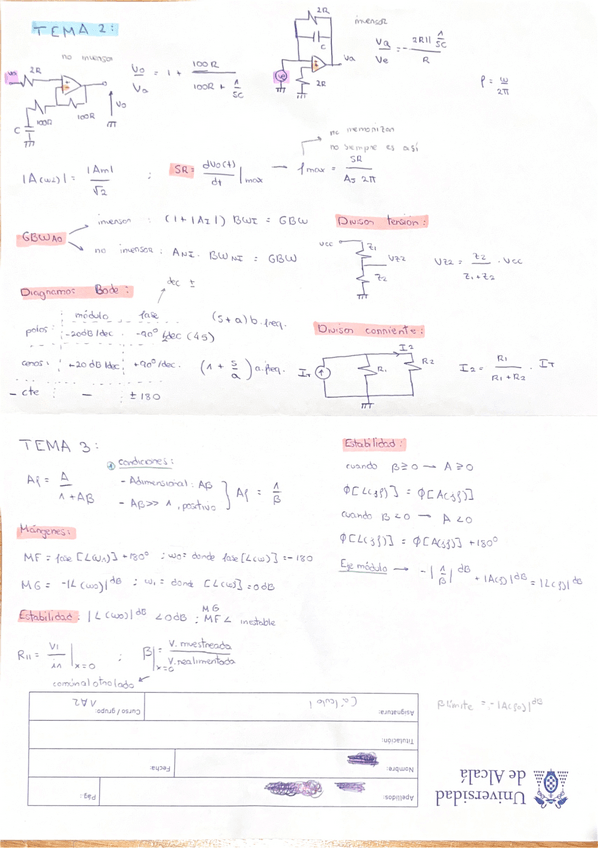 TEMA 2:
no inversor
2R
100R
100R
C
Vo
Vo/Va = 1 + 100R / (100R + 1/SC)
2R
C
Va
2R
inversor
Va/Ve = - 2R || 1/SC / R
f = ω/2π
|A(ω)| = |Am|/√2 ;
SR = dVo(t)/dt |max → fmax = SR / (A 2π)
no memorizar
no siempre es así
GBW AO
inversor : (1+|AI|) BWI = GBW
no inversor : ANI · BWNI = GBW
Divisor tensión:
Vcc
Z1
VZ2
Z2
VZ2 = Z2/(Z1+Z2) · Vcc
Diagramas Bode:
dec ±
módulo fase
polos: -20dB/dec -90º/dec (45) (s+a) b.freq.
ceros: +20dB/dec +90º/dec. (1 + s/a) a.freq.
- cte - ±180
Divisor corriente:
IT
R1
I2
R2
I2 = R1/(R1+R2) · IT
TEMA 3:
Af = A/(1+Aβ)
condiciones:
- Adimensional: Aβ
- Aβ>>1, positivo
Af = 1/β
Márgenes:
MF = fase [L(ω1)] +180º ; ω0 = donde fase[L(ω)] = -180
MG = -|L(ω0)|dB ; ω1 = donde [L(ω)] = 0dB
Estabilidad: |L(ω0)|dB < 0dB ; MG MF < inestable
R11 = V1/i1 |x=0 ; β|x=0 = V. muestreada / V. realimentada
común al otro lado
Estabilidad:
cuando β≥0 → A≥0
Φ[L(jf)] = Φ[A(jf)]
cuando β<0 → A<0
Φ[L(jf)] = Φ[A(jf)] +180º
Eje módulo → -|1/β|dB + |A(f)|dB = |L(f)|dB
βlímite = -|A(f0)|dB
Universidad
de Alcalá
Apellidos:
Pág:
Nombre:
Fecha:
Titulación:
Asignatura: Cálculo I
Curso / grupo: 1A A2